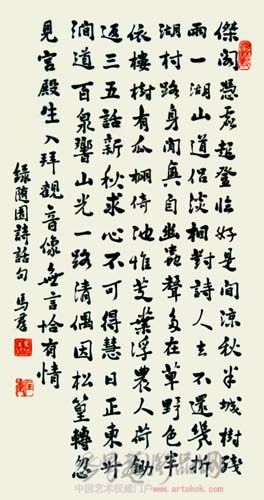 傑閣憑虚起登臨好是閒涼秋半城樹殘
雨一湖山道侶淡相對詩人去不還幾折
湖村路身閒真自幽蟲聲多在草野色半
依樓樹有瓜棚倚池惟芰葉浮農人荷鋤
返三五話新秋求心不可得慧日正東升
澗道百泉響山光一路清偶因松篁轉忽
見宮殿生入拜觀音像無言恰有情
録隨園詩話句 馬
中国艺术权威门户www.artokok.com